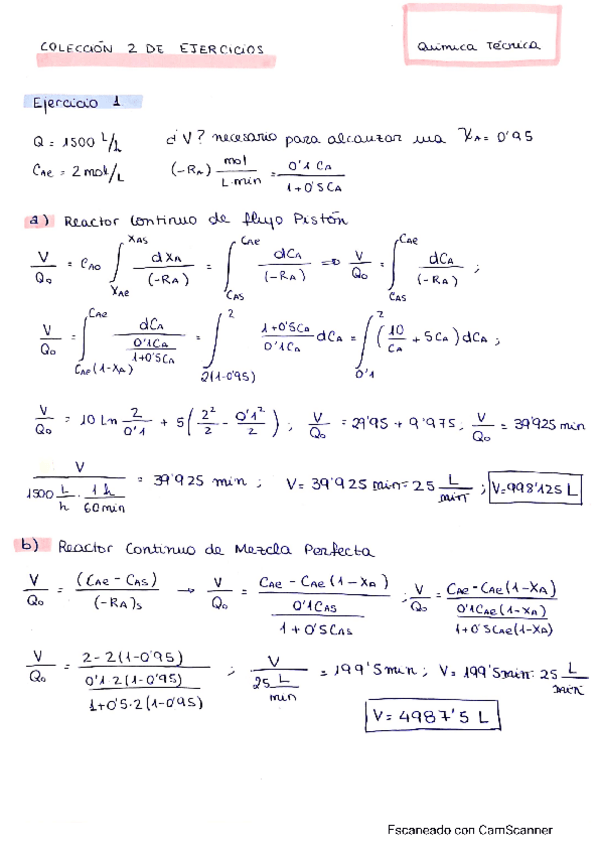 COLECCIÓN 2 DE EJERCICIOS
QUÍMICA TÉCNICA
Ejercicio 1
Q = 1500 L/h ¿V? necesario para alcanzar una XA = 0'95
CAe = 2 mol/L (-RA) mol/L·min = 0'1 CA / 1+0'5CA
a) Reactor continuo de flujo Pistón
V/Q0 = CA0 ∫XAe^XAS dXA/(-RA) = ∫CAS^CAe dCA/(-RA) => V/Q0 = ∫CAS^CAe dCA/(-RA) ;
V/Q0 = ∫CAe(1-XA)^CAe dCA/(0'1CA/1+0'5CA) = ∫2(1-0'95)^2 1+0'5CA/0'1CA dCA = ∫0'1^2 (10/CA + 5CA) dCA ;
V/Q0 = 10 Ln 2/0'1 + 5(2²/2 - 0'1²/2) ; V/Q0 = 29'95 + 9'975, V/Q0 = 39'925 min
V/(1500 L/h · 1h/60min) = 39'925 min ; V= 39'925 min · 25 L/min ; V=998'125 L
b) Reactor Continuo de Mezcla Perfecta
V/Q0 = (CAe - CAS)/(-RA)s → V/Q0 = CAe - CAe(1-XA)/(0'1CAS/1+0'5CAS) ; V/Q0 = CAe - CAe(1-XA)/(0'1CAe(1-XA)/1+0'5CAe(1-XA))
V/Q0 = 2-2(1-0'95)/(0'1·2(1-0'95)/1+0'5·2(1-0'95)) ; V/(25 L/min) = 199'5min ; V= 199'5min · 25 L/min
V= 4987'5 L
Escaneado con CamScanner